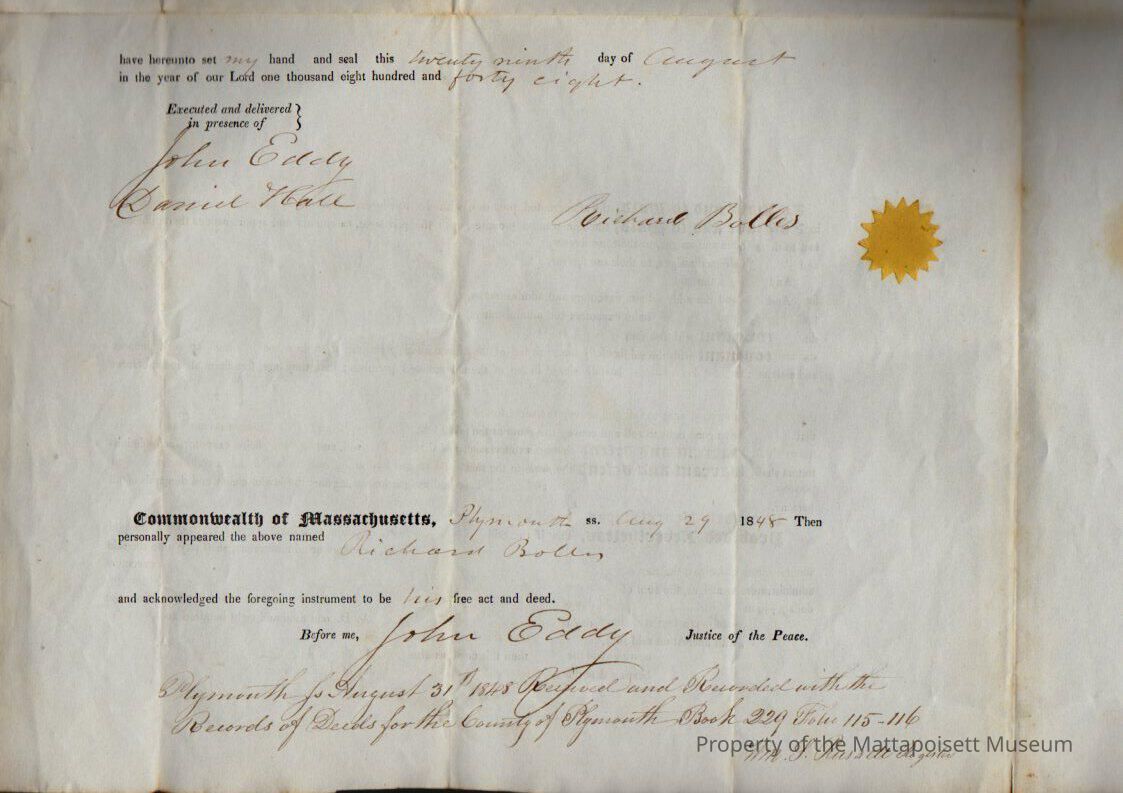 have hereunto set my hand and seal this twenty ninth day of August
in the year of our Lord one thousand eight hundred and forty eight.
Executed and delivered }
in presence of
John Eddy
Daniel Hall
Richard Bolles
Commonwealth of Massachusetts, Plymouth ss. Aug 29 1848 Then
personally appeared the above named
Richard Bolles
and acknowledged the foregoing instrument to be his free act and deed.
Before me, John Eddy Justice of the Peace.
Plymouth ss August 31st 1848 Received and Recorded with the
Records of Deeds for the County of Plymouth Book 229 Folio 115-116
Wm. S. Russell Register
Property of the Mattapoisett Museum